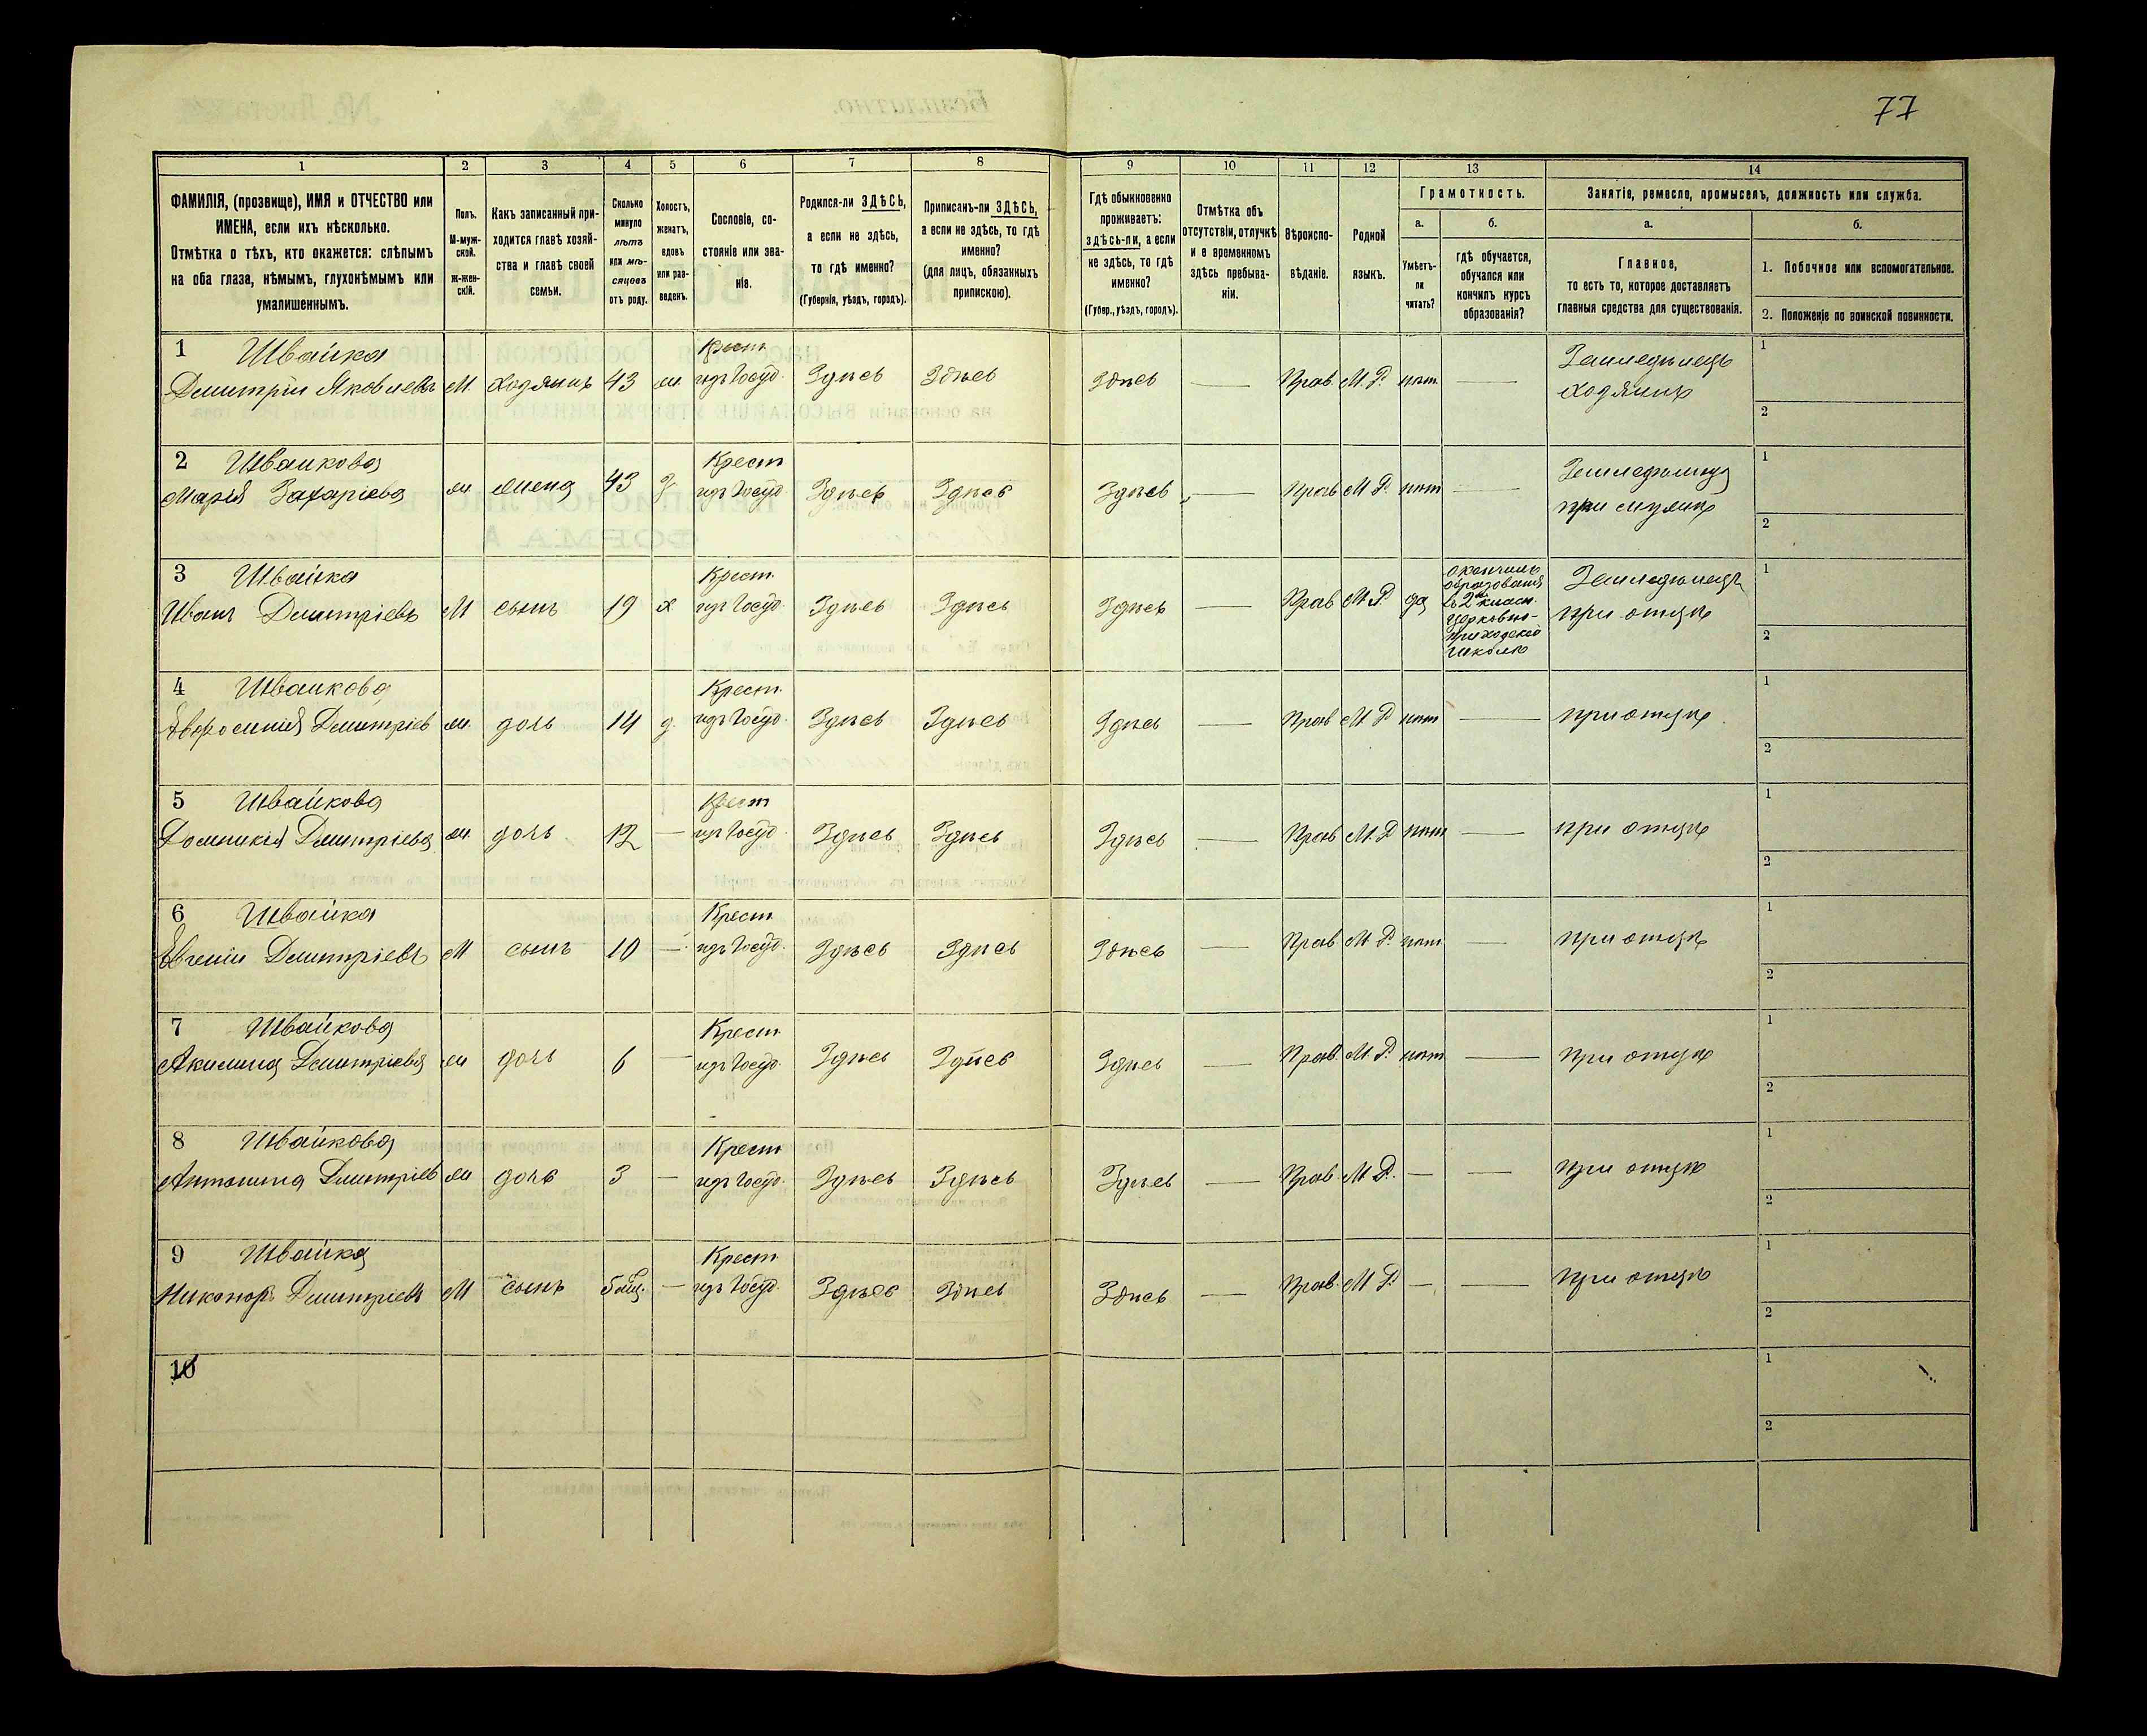 77
1 2 3 4 5 6 7 8 9 10 11 12 13 14
ФАМИЛІЯ, (прозвище), ИМЯ и ОТЧЕСТВО или
ИМЕНА, если ихъ нѣсколько.
Отмѣтка о тѣхъ, кто окажется: слѣпымъ
на оба глаза, нѣмымъ, глухонѣмымъ или
умалишеннымъ.
Полъ.
М-муж-
ской.
ж-жен-
скій.
Какъ записанный при-
ходится главѣ хозяй-
ства и главѣ своей
семьи.
Сколько
минуло
лѣтъ
или мѣ-
сяцовъ
отъ роду.
Холостъ,
женатъ,
вдовъ
или раз-
веденъ.
Сословіе, со-
стояніе или зва-
ніе.
Родился-ли ЗДѢСЬ,
а если не здѣсь,
то гдѣ именно?
(Губернія, уѣздъ, городъ).
Приписанъ-ли ЗДѢСЬ,
а если не здѣсь, то гдѣ
именно?
(для лицъ, обязанныхъ
припискою).
Гдѣ обыкновенно
проживаетъ:
здѣсь-ли, а если
не здѣсь, то гдѣ
именно?
(Губер., уѣздъ, городъ).
Отмѣтка объ
отсутствіи, отлучкѣ
и о временномъ
здѣсь пребыва-
ніи.
Вѣроиспо-
вѣданіе.
Родной
языкъ.
Грамотность.
а.
Умѣетъ-
ли
читать?
б.
гдѣ обучается,
обучался или
кончилъ курсъ
образованія?
Занятіе, ремесло, промыселъ, должность или служба.
а.
Главное,
то есть то, которое доставляетъ
главныя средства для существованія.
б.
1. Побочное или вспомогательное.
2. Положеніе по воинской повинности.
1 Швайка Крест. Земледѣлецъ 1
Дмитрій Яковлевъ М хозяинъ 43 ж. изъ Госуд. Здѣсь Здѣсь Здѣсь — Прав. М. Р. нѣт — хозяинъ 2
2 Швайкова Крест Земледѣлица 1
Марія Захаріева ж жена 43 з. изъ Госуд Здѣсь Здѣсь Здѣсь — Прав М Р. нѣт — при мужѣ 2
3 Швайка Крест. окончилъ образованіе въ 2 класн. церковно-приходской школѣ Земледѣлецъ 1
Иванъ Дмитріевъ М сынъ 19 х изъ Госуд. Здѣсь Здѣсь Здѣсь — Прав М. Р. да при отцѣ 2
4 Швайкова Крест. 1
Евфросинія Дмитріев ж. дочь 14 д. изъ Госуд. Здѣсь Здѣсь Здѣсь — Прав М Р нѣт — при отцѣ 2
5 Швайкова Крест 1
Домникія Дмитріева ж дочь 12 — изъ Госуд. Здѣсь Здѣсь Здѣсь — Прав М. Р нѣт — при отцѣ 2
6 Швайка Крест 1
Евгеній Дмитріевъ М сынъ 10 — изъ Госуд. Здѣсь Здѣсь Здѣсь — Прав М Р. нѣт — при отцѣ 2
7 Швайкова Крест 1
Акилина Дмитріева ж дочь 6 — изъ Госуд. Здѣсь Здѣсь Здѣсь — Прав. М. Р. нѣт — при отцѣ 2
8 Швайкова Крест 1
Антонина Дмитріев ж дочь 3 — изъ Госуд. Здѣсь Здѣсь Здѣсь — Прав М. Р. — — при отцѣ 2
9 Швайка Крест 1
Никаноръ Дмитріевъ М сынъ изъ Госуд. Здѣсь Здѣсь Здѣсь — Прав. М Р. — — при отцѣ 2
10 1
2